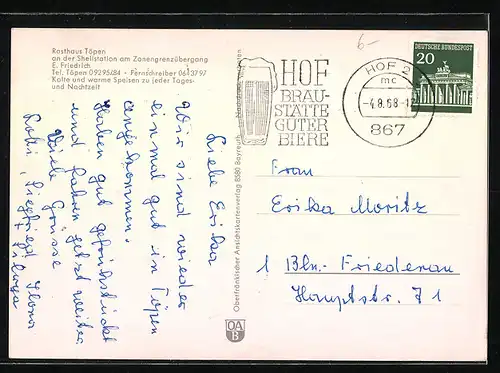 Rasthaus Töpen
an der Shellstation am Zonengrenzübergang
E. Friedrich
Tel. Töpen 09295/84 · Fernschreiber 0643797
Kalte und warme Speisen zu jeder Tages-
und Nachtzeit
Liebe Erika
Wir sind wieder
einmal gut in Töpen
angekommen.
Haben gut gefrühstückt
und fahren jetzt weiter
Viele Grüsse
Siegfried, Ilona
Oberfränkischer Ansichtskartenverlag 8580 Bayreuth
OA
B
6-
HOF
BRAU-
STÄTTE
GUTER
BIERE
HOF 2
mc
-4.8.68-12
867
DEUTSCHE BUNDESPOST
20
Frau
Erika Moritz
1 Bln.- Friedenau
Hauptstr. 71